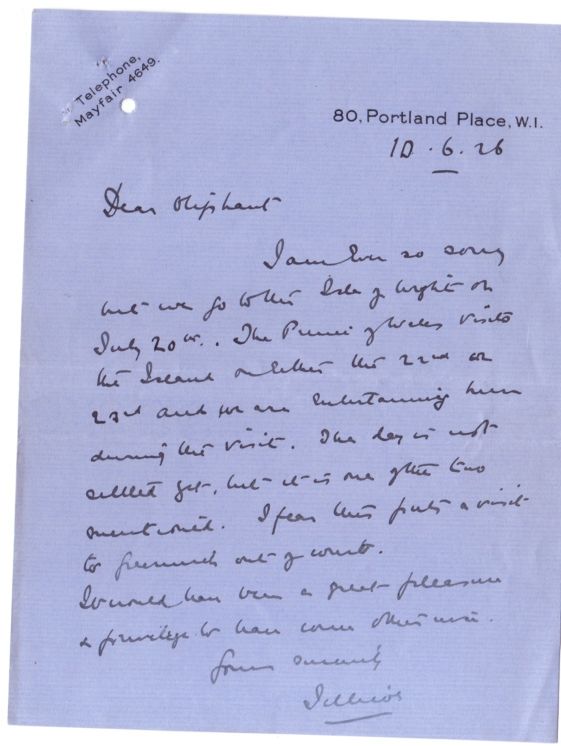 Telephone,
Mayfair 4649.
80, Portland Place, W.1.
10 . 6 . 26
Dear Oliphant
I am Ever so sorry
but we go to the Isle of Wight on
July 20th. . The Prince of Wales visits
the Island on Either the 22nd or
23rd and we are Entertaining him
during the visit. The day is not
settled yet, but it is one of the two
mentioned. I fear this puts a visit
to Greenwich out of court.
It would have been a great pleasure
& privilege to have come otherwise.
Yours sincerely
Jellicoe